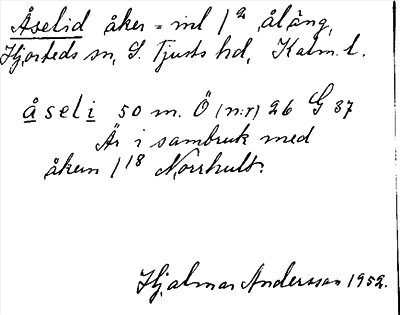 Åselid åker = inl 1ª, åläng,
Hjorteds sn, S. Tjusts hd, Kalm. l.
åseli 50 m. Ö (n:r) 26 G 37
Är i sambruk med
åkern 1¹⁸ Norrhult.
Hjalmar Andersson 1952.